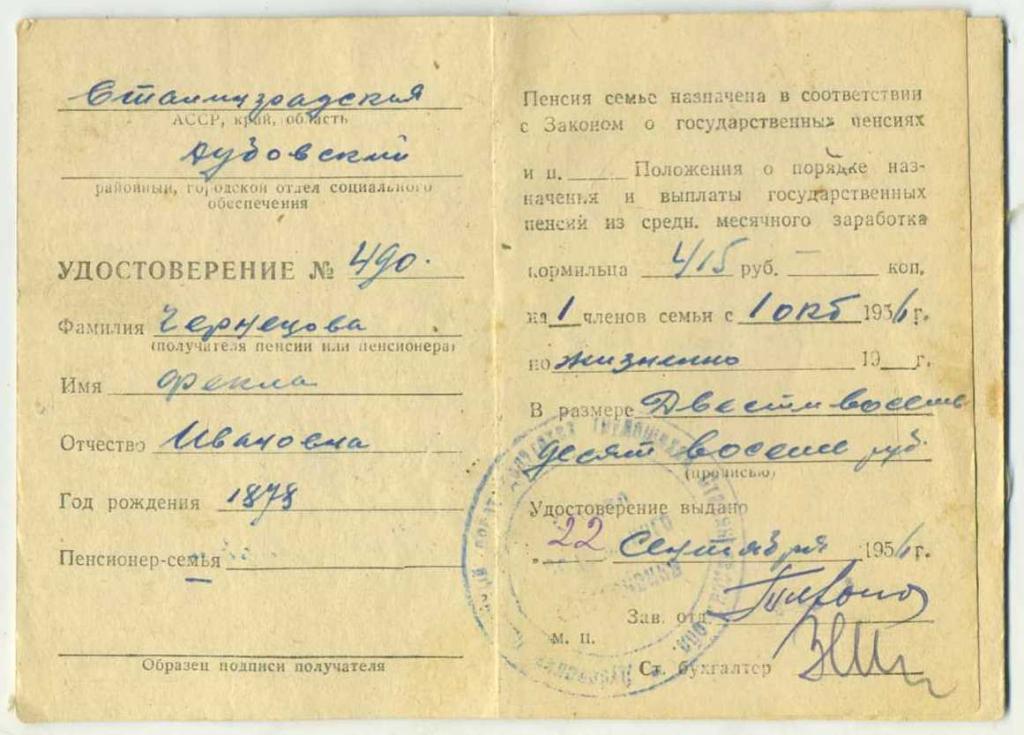 Сталинградская
АССР, край, область
Дубовский
районный, городской отдел социального
обеспечения
УДОСТОВЕРЕНИЕ № 490.
Фамилия Чернецова
(получателя пенсии или пенсионера)
Имя Фекла
Отчество Ивановна
Год рождения 1878
Пенсионер-семья
Образец подписи получателя
Пенсия семье назначена в соответствии
с Законом о государственных пенсиях
и п. ___ Положения о порядке наз-
начения и выплаты государственных
пенсий из средн. месячного заработка
кормильца 415 руб. — коп.
на 1 членов семьи с 1 окт 1956 г.
по жизненно 19__ г.
В размере Двести восемь
десят восемь руб.
(прописью)
Удостоверение выдано
„22 Сентября 1956 г.
Зав. отд.
м. п.
Ст. бухгалтер